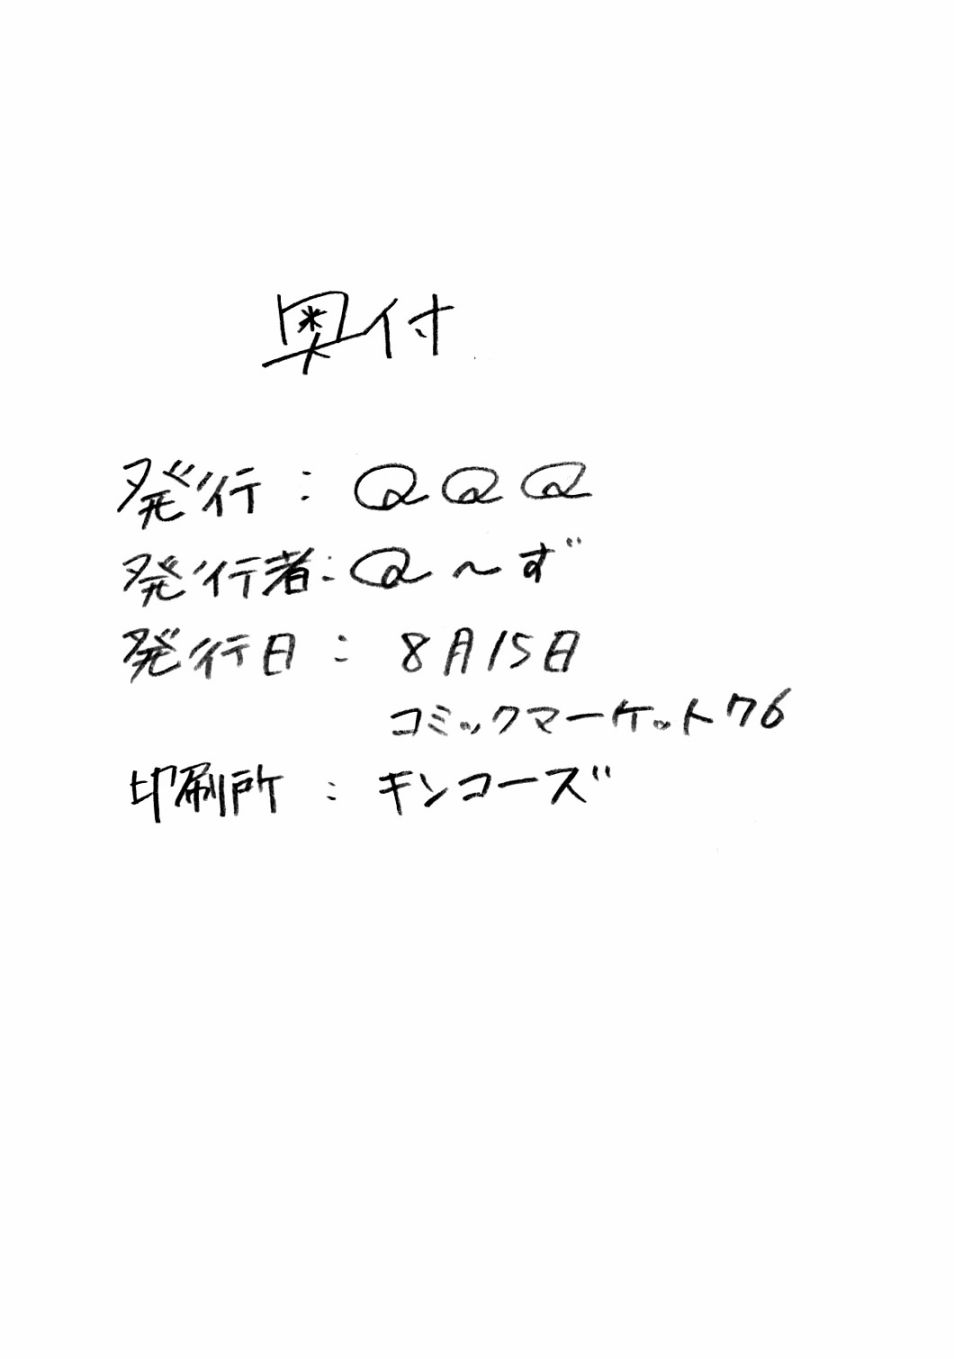 奥付
発行：QQQ
発行者：Q～ず
発行日：8月15日
コミックマーケット76
印刷所：キンコーズ